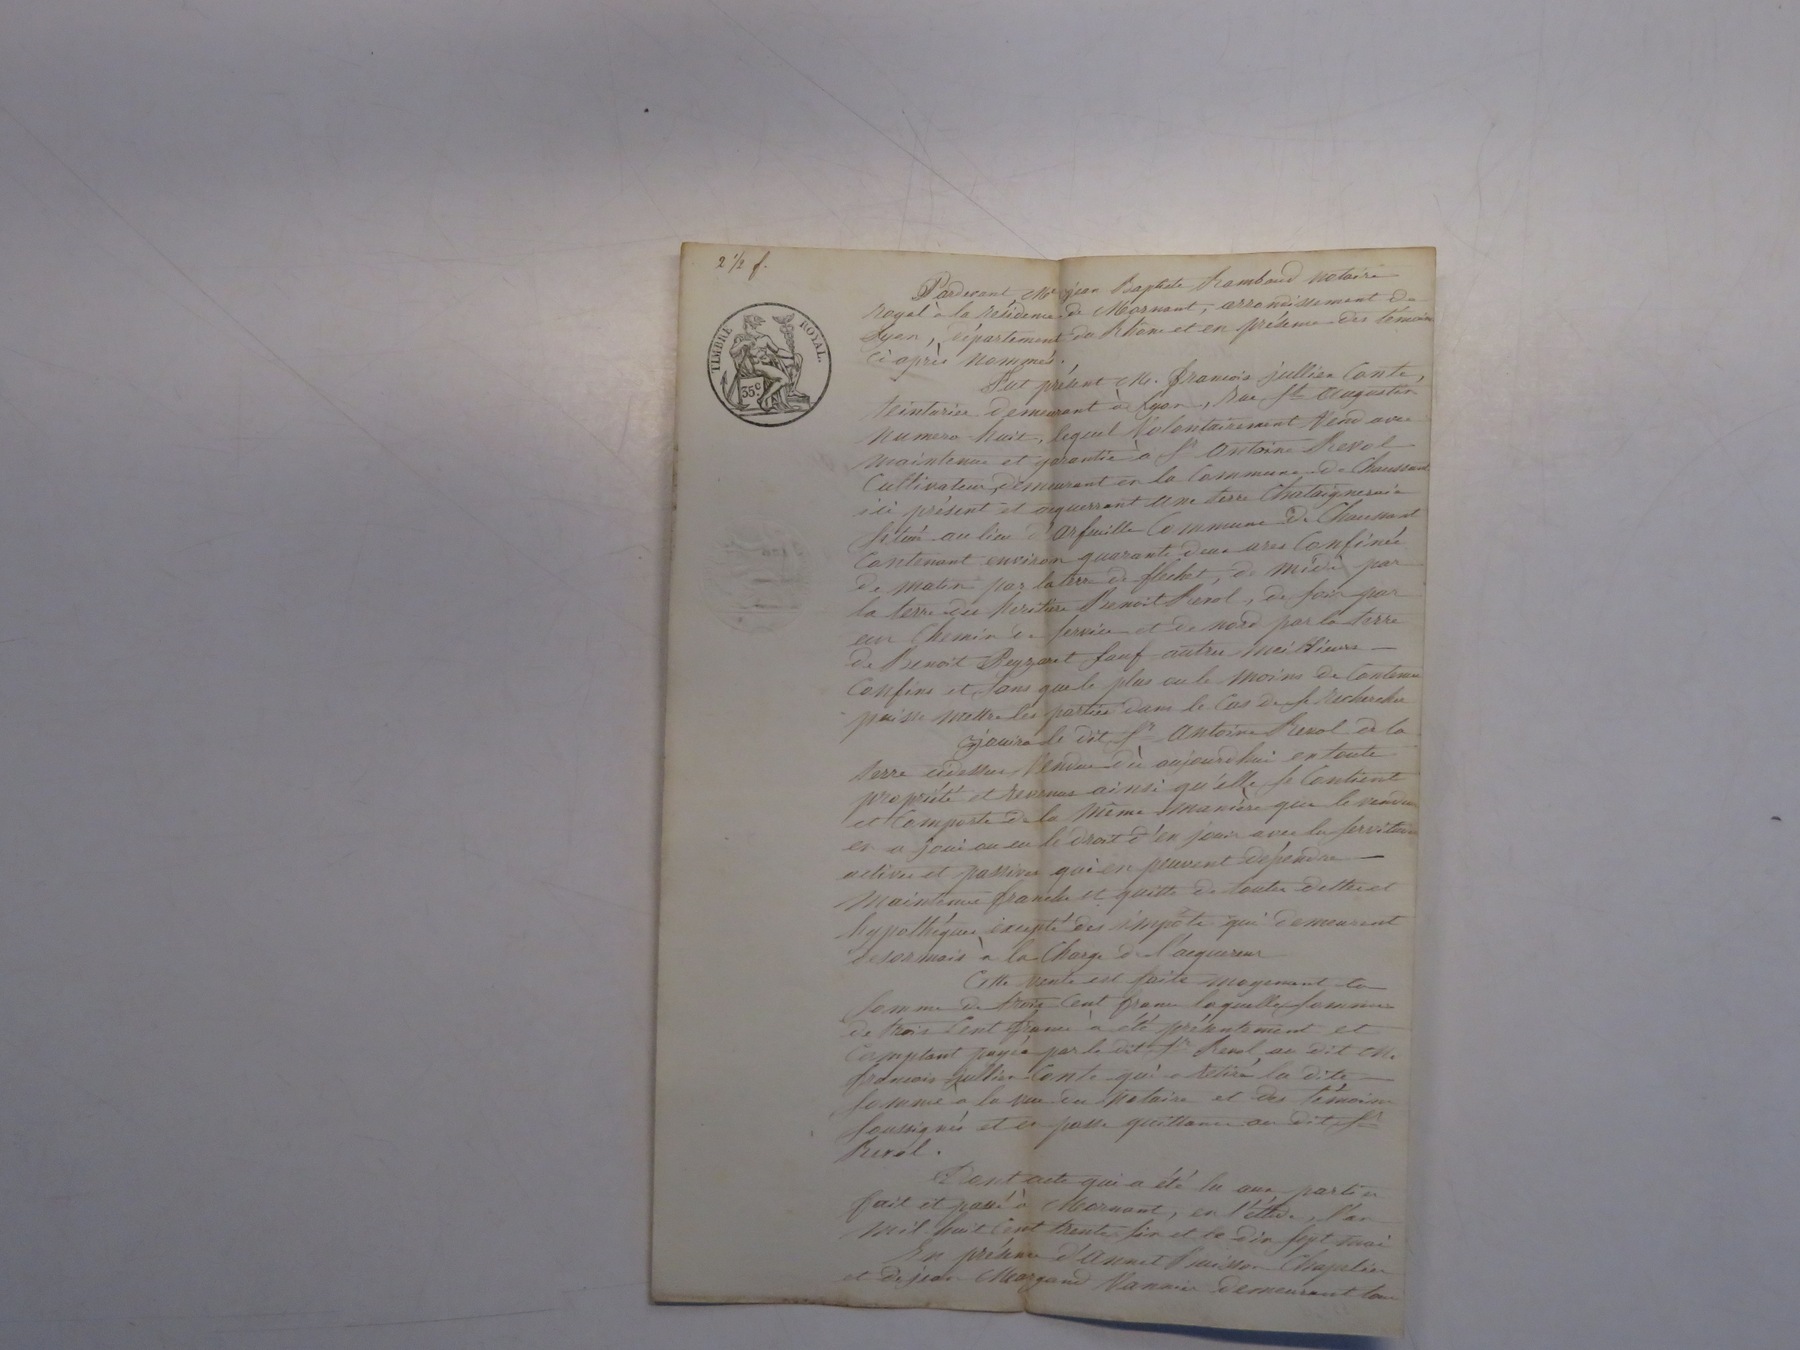 2 1/2 f.
TIMBRE ROYAL.
35 c.
Pardevant Me jean Baptiste Rambaud notaire
Royal à la résidence de Mornant, arrondissement de
Lyon, département du Rhône et en présence des témoins
ci après nommés.
Fut présent M. françois jullien Conte,
teinturier demeurant à Lyon, rue St Augustin
numero huit, lequel Volontairement Vend avec
maintenue et garantie à Sr Antoine Revol
Cultivateur, demeurant en la Commune de Chaussant
ici présent et acquerrant une terre Chataigneraie
Située au lieu d'Arfeuille Commune de Chaussant
Contenant environ quarante deux ares Confinée
de matin par la terre de flechet, de midi par
la terre des héritiers Benoit Revol, de soir par
un Chemin de service et de nord par la terre
de Benoit Peyzaret sauf autres meilleurs
Confins et sans que le plus ou le moins de Contenue
puisse mettre les parties dans le Cas de se rechercher
jouira le dit Sr Antoine Revol de la
terre cidessus Vendue dès aujourdhui en toute
propriété et revenus ainsi qu'elle se Contient
et Comporte de la même manière que le vendeur
en a joui ou eu le droit d'en jouir avec les servitudes
actives et passives qui en peuvent dépendre
Maintenue franche et quitte de toutes dettes et
hypothéques excepté des impôts qui demeurent
desormais à la Charge de l'acquereur
Cette vente est faite moyenant la
Somme de trois Cent francs laquelle somme
de trois Cent francs a été présentement et
Comptant payée par le dit Sr Revol au dit M.
françois jullien Conte qui a retiré la dite
Somme à la vue du Notaire et des témoins
Soussignés et en passe quittance au dit Sr
Revol.
Dont acte qui a été lu aux parties
fait et passé à Mornant, en l'étude, l'an
mil huit Cent trente six et le dix sept mai
En présence d'Annet Buisson Chapelier
et de jean Margand Vannier demeurant tous